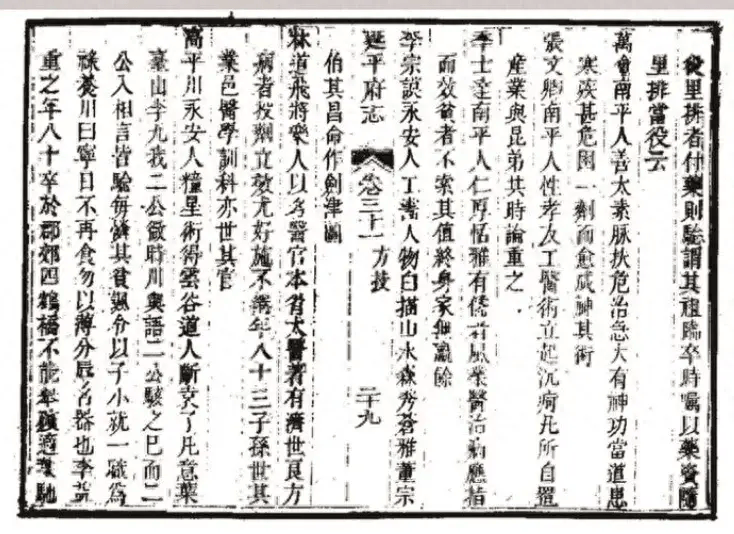 後里排者付藥則驗謂其祖臨卒時囑以藥資隨
里排當役云
萬會南平人善太素脉扶危治急大有神功當道患
寒疾甚危困一劑而愈咸神其術
張文卿南平人性孝友工醫術立起沉痾凡所自置
產業與昆弟共時論重之
李士達南平人仁厚恬雅有儒者風業醫治病應措
而效貧者不索其值終身家無贏餘
李宗謨永安人工畫人物白描山水森秀蒼雅董宗
延平府志 卷三十一 方技 二十九
伯其昌命作劍津圖
林道飛將樂人以名醫官本省太醫著有濟世良方
病者投劑立效尤好施不倦年八十三子孫世其
業邑醫學訓科亦世其官
高平川永安人精星術得雲谷道人斷 凡意葉
臺山李九我二公微時川與語二公駭之已而二
公入相言皆驗每濟其貧飄分以子小就一職為
祿養川曰寧日不再食勿以薄分辰名器也李益
重之年八十卒於郡郊四 福不能 適葉馳